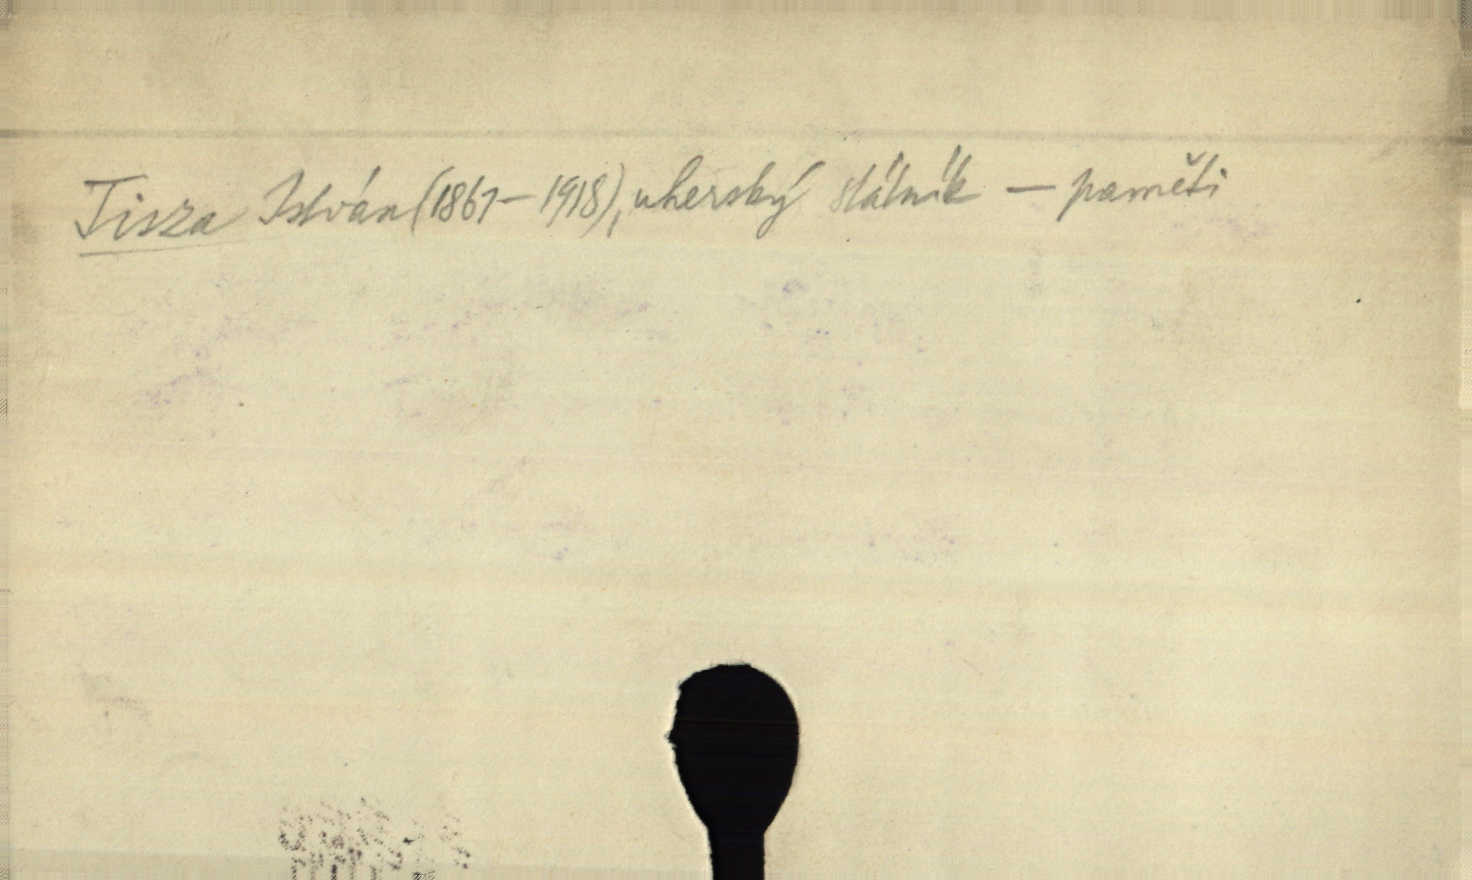 Tisza István (1861-1918), uherský státník — paměti